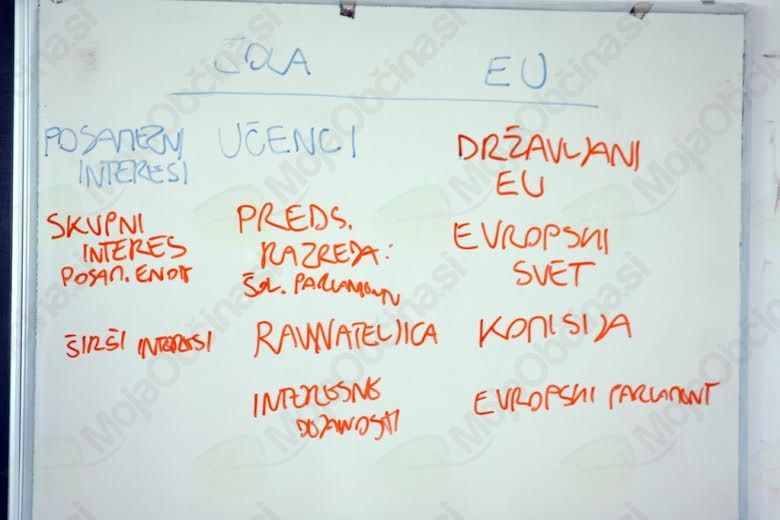 ŠOLA EU
POSAMEZNI UČENCI DRŽAVLJANI
INTERESI EU
SKUPNI PREDS. EVROPSKI
INTERES RAZREDA: SVET
POSAM. ENOT ŠOL. PARLAMENT
ŠIRŠI INTERESI RAVNATELJICA KOMISIJA
INTERESNE EVROPSKI PARLAMENT
DEJAVNOSTI
MojaObčina.si